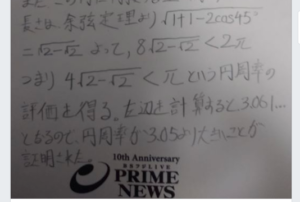 長さは余弦定理より√1+1-2cos45°
=√2-√2 よって, 8√2-√2 < 2π
つまり 4√2-√2 < π という円周率の
評価を得る。左辺を計算すると3.061...
となるので、円周率が3.05より大きいことが
証明された。
10th Anniversary
PRIME
NEWS